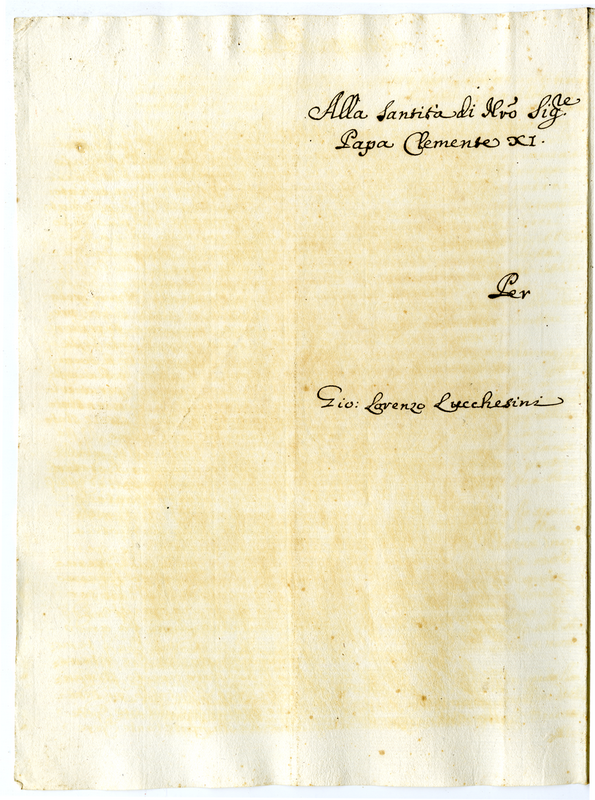 Alla Santità di Nrõ Sig.re
Papa Clemente XI.
Per
Gio: Lorenzo Lucchesini